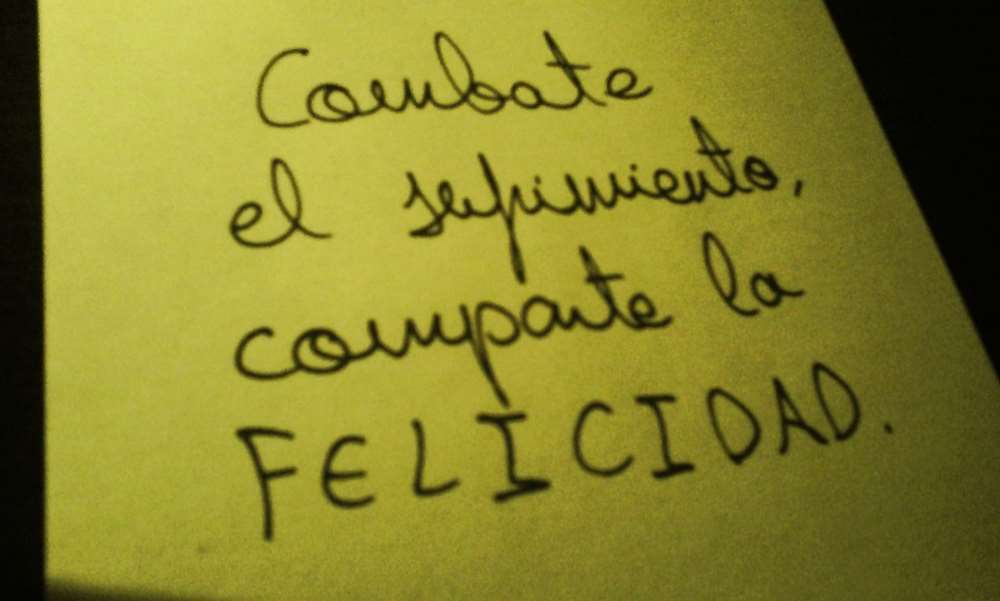 Combate
el sufrimiento,
comparte la
FELICIDAD.